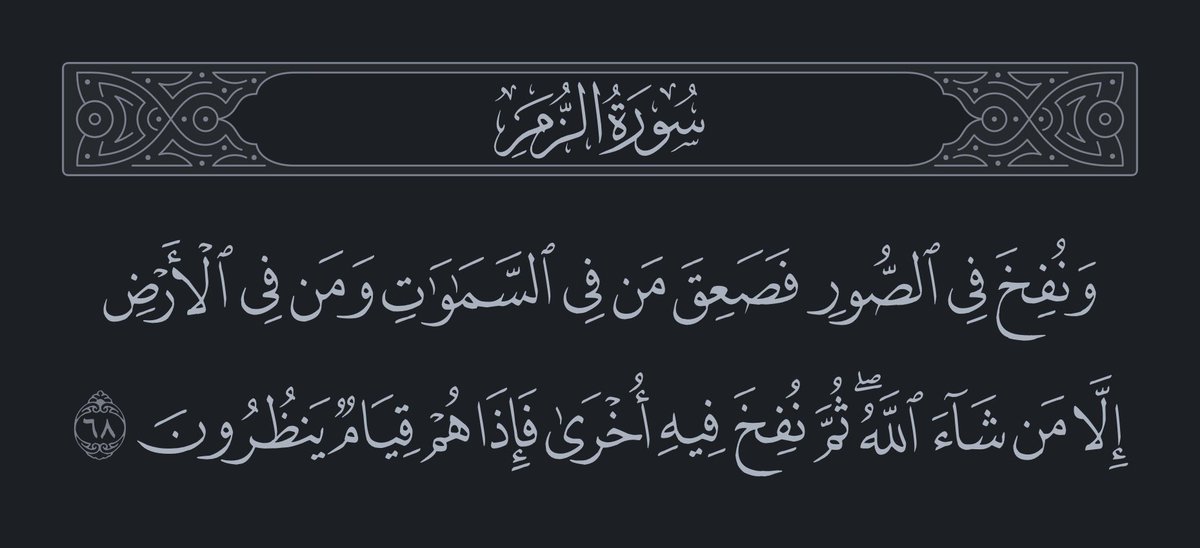 سُورَةُ الزُّمَرِ
وَنُفِخَ فِى ٱلصُّورِ فَصَعِقَ مَن فِى ٱلسَّمَٰوَٰتِ وَمَن فِى ٱلْأَرْضِ
إِلَّا مَن شَآءَ ٱللَّهُ ۖ ثُمَّ نُفِخَ فِيهِ أُخْرَىٰ فَإِذَا هُمْ قِيَامٌ يَنظُرُونَ ٦٨